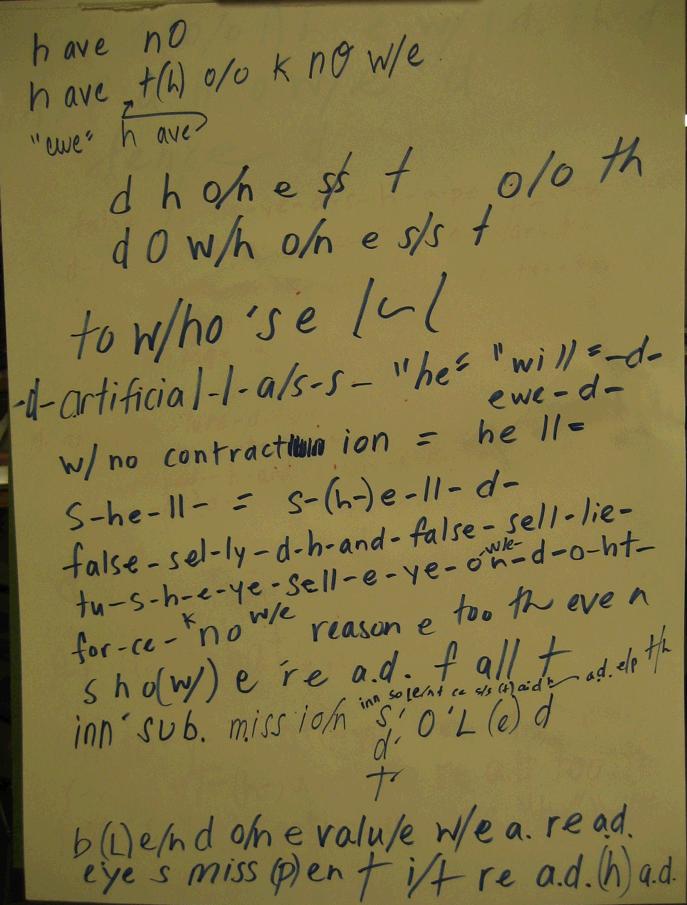 have nO
have t(h) o/o k nO w/e
"ewe" h ave
d h o/n e s/s t o/o th
d O w/h o/n e s/s t
to w/ho 's e
-d-artificial-l-a/s-s- "he" "will"=-d-
ewe-d-
w/ no contract ion = he ll=
s-he-ll- = s-(h-)e-ll-d-
false-sel-ly-d-h-and-false-sell-lie-
tu-s-h-e-ye-sell-e-ye-o'n-d-o-ht-
w/e-
for-ce-k no w/e reason e too th eve n
s ho(w/) e 're a.d. f all t
inn so le/nt ce s/s (t) aid h ad. e/p t/h
inn' sub. miss io/n s' O'L (e) d
d'
t'
b(L)e/nd o/n e valu/e w/e a. re ad.
eye s miss (p) en t i/t re a.d. (h) a.d.